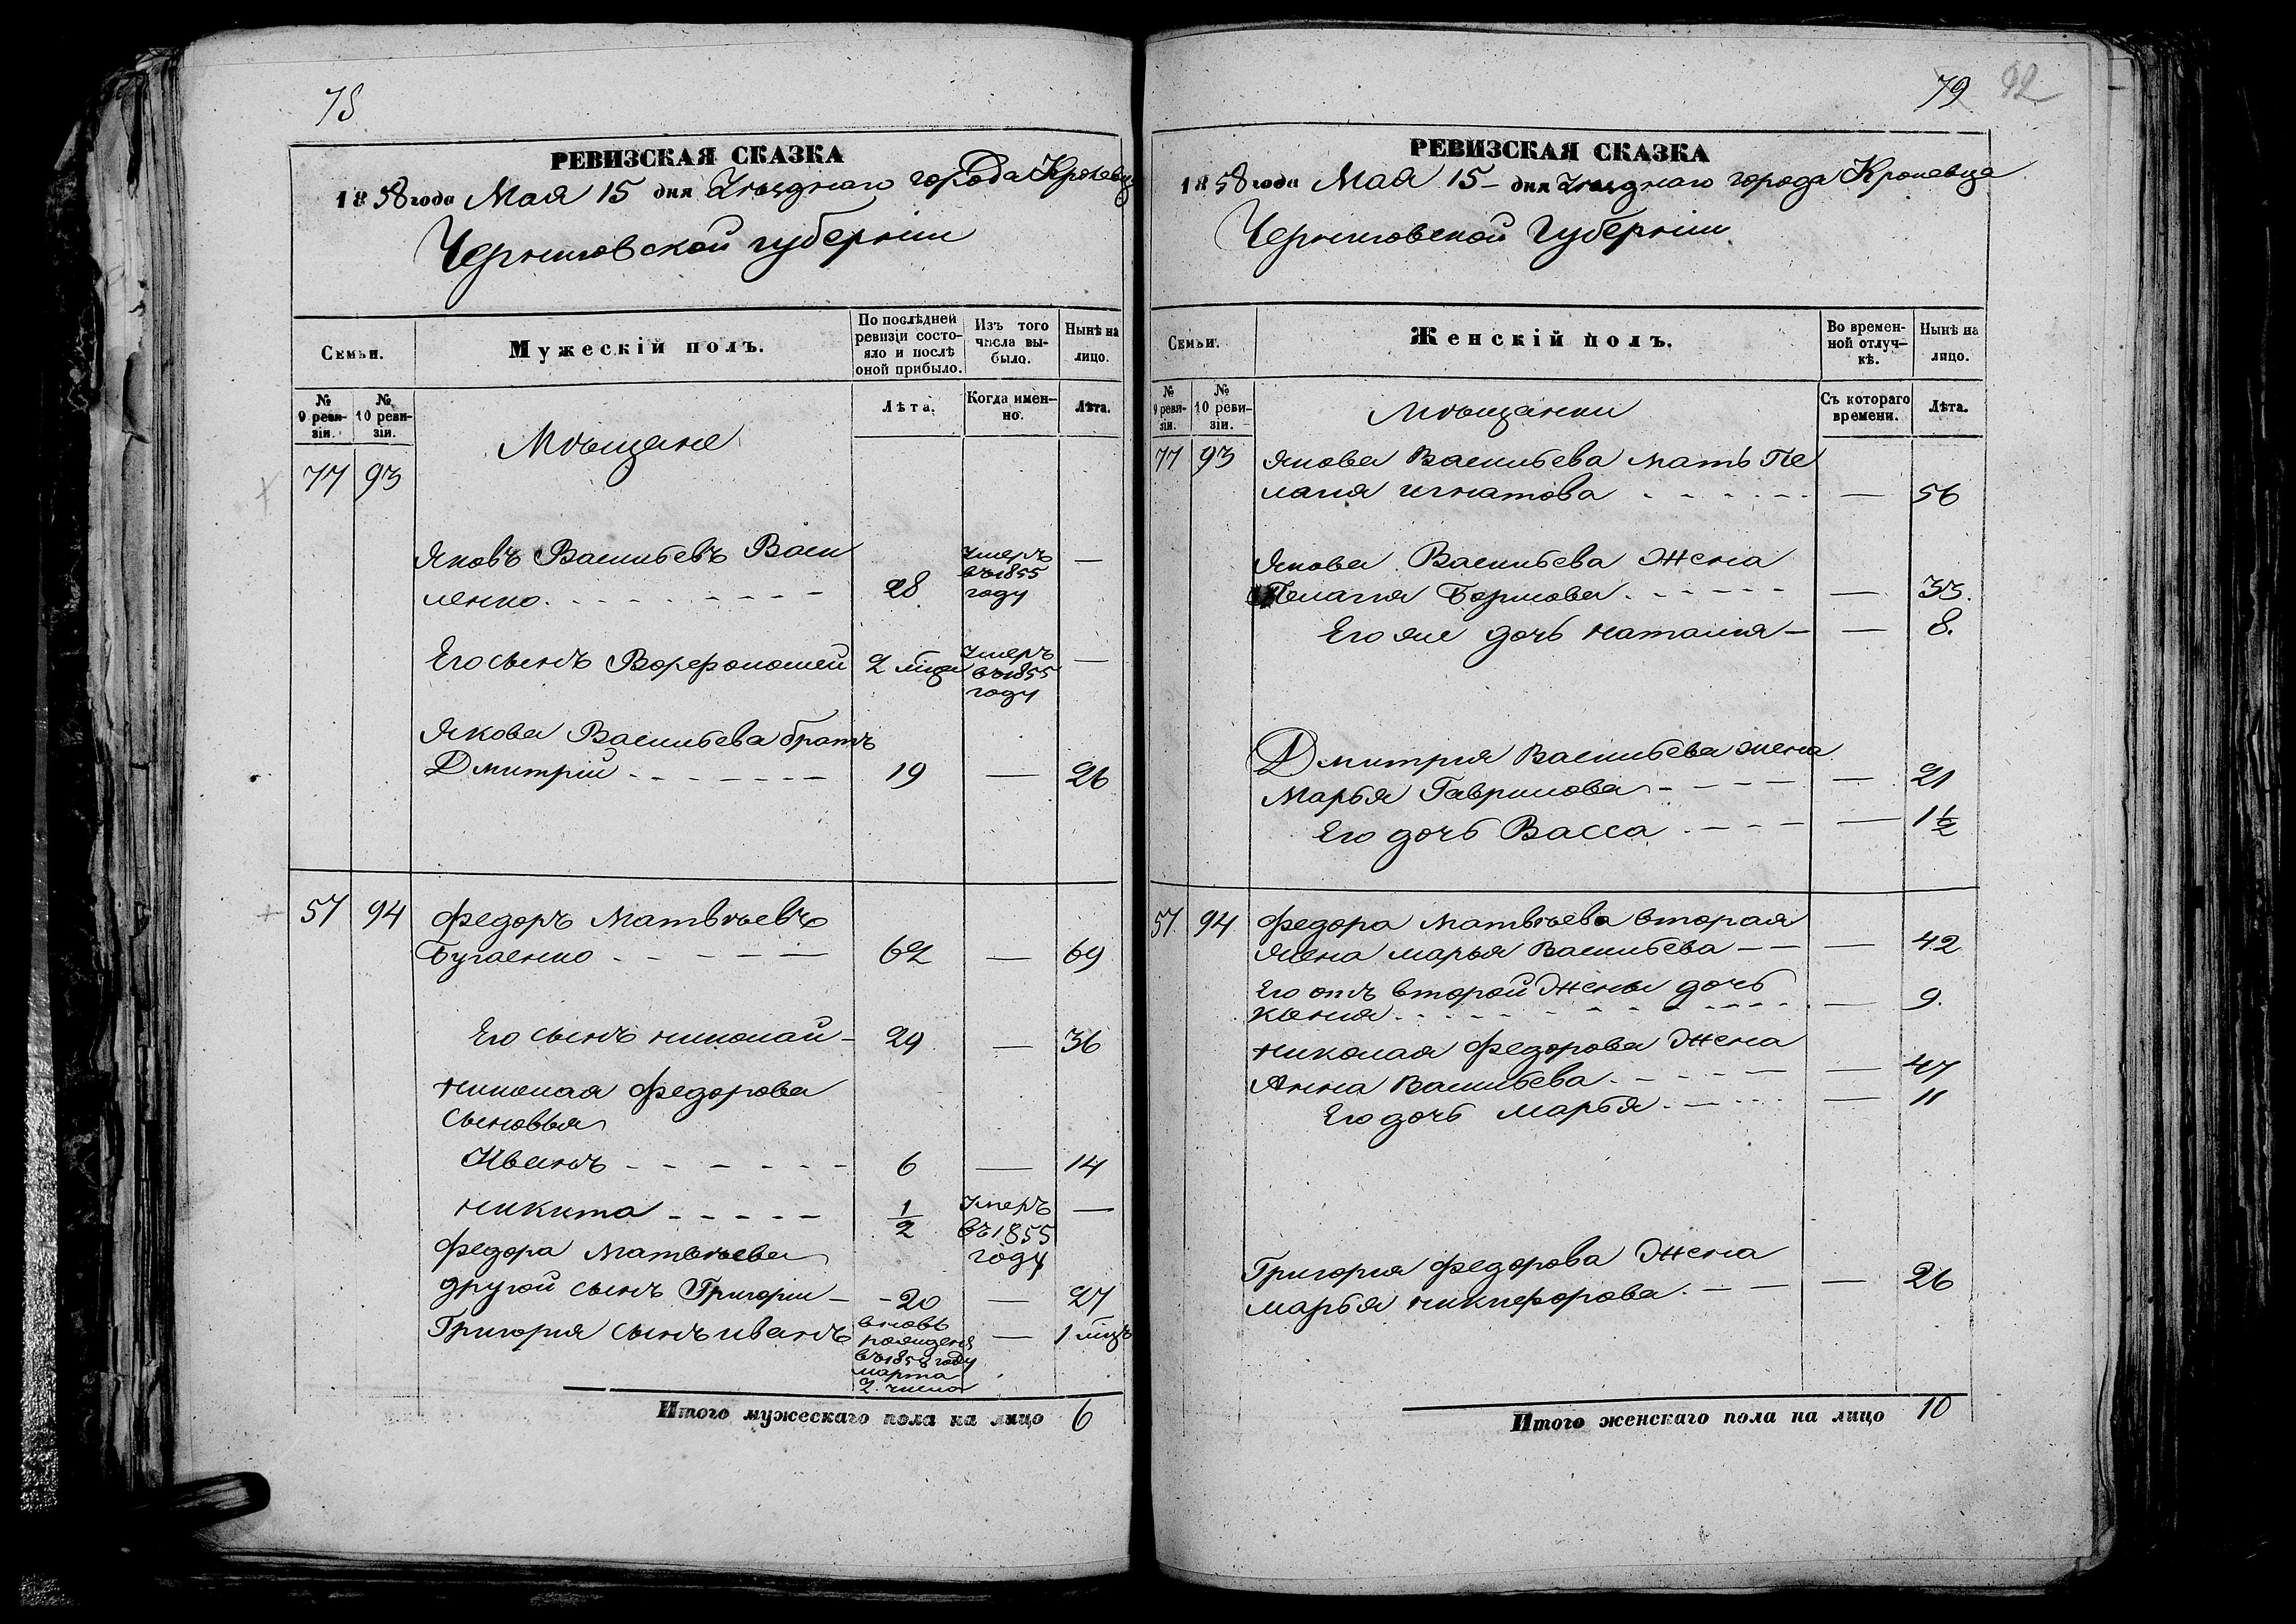 78
РЕВИЗСКАЯ СКАЗКА
1858 года Мая 15 дня Уѣзднаго города Кролевца
Черниговской губерніи
Семьи.
Мужескій полъ.
По послѣдней ревизіи состояло и послѣ оной прибыло.
Изъ того числа выбыло.
Нынѣ на лицо.
№ 9 ревизіи.
№ 10 ревизіи.
Лѣта.
Когда именно.
Лѣта.
Мѣщане
77 93
Яковъ Васильевъ Васи
ленко 28 Умеръ въ 1855 году —
Его сынъ Ворфоломей 2 мѣца Умеръ въ 1855 году —
Якова Васильева братъ
Дмитрій 19 — 26
57 94 Федоръ Матвѣевъ
Бугаенко 62 — 69
Его сынъ николай 29 — 36
николая Федорова
сыновья
Иванъ 6 — 14
никита 1/2 Умеръ въ 1855 году —
Федора Матвѣева
другой сынъ Григорій 20 — 27
Григорія сынъ иванъ вновь рожденъ въ 1858 году марта 2. числа — 1 мѣцъ
Итого мужескаго пола на лицо 6
79 92
РЕВИЗСКАЯ СКАЗКА
1858 года Мая 15 дня Уѣзднаго города Кролевца
Черниговской Губерніи
Семьи.
Женскій полъ.
Во временной отлучкѣ.
Нынѣ на лицо.
№ 9 ревизіи.
№ 10 ревизіи.
Съ котораго времени.
Лѣта.
Мѣщанки
77 93 Якова Васильева мать Пе
лагия игнатова — 56
Якова Васильева Жена
Пелагия Борисова — 33.
Его же дочь наталия — 8.
Дмитрия Васильева жена
Марья Гаврилова — 21
Его дочь Васса — 1 1/2
57 94 Федора Матвѣева вторая
жена марья Васильева — 42
Его отъ второй Жены дочь
— 9.
николая Федорова Жена
Анна Васильева — 47
Его дочь Марья — 11
Григория Федорова Жена
марья никифорова — 26
Итого женскаго пола на лицо 10